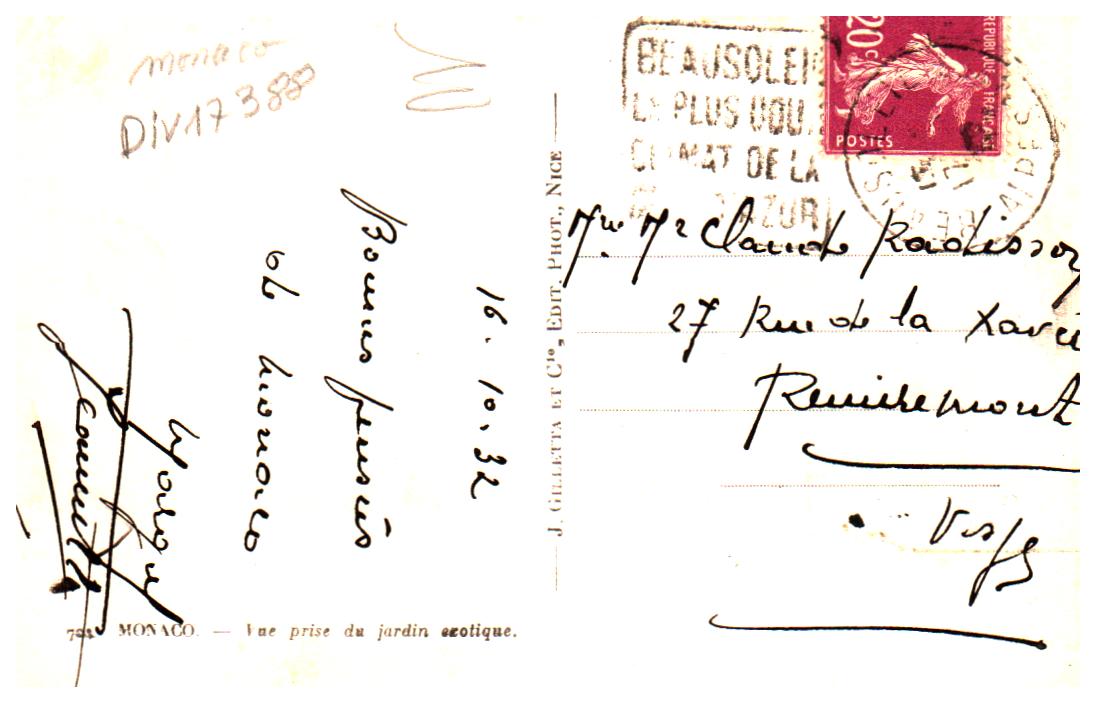 monaco
DIV17388
BEAUSOLEIL
LE PLUS DOU
CLIMAT DE LA
AZUR
20c
POSTES
REPUBLIQUE FRANÇAISE
16.10.32
Bonnes pensées
de Monaco
Camille
J. GILLETTA ET Cie, EDIT. PHOT., NICE
Mme Mr Claude Radisson
27 Rue de la Xavée
Remiremont
Vosges
MONACO. — Vue prise du jardin exotique.